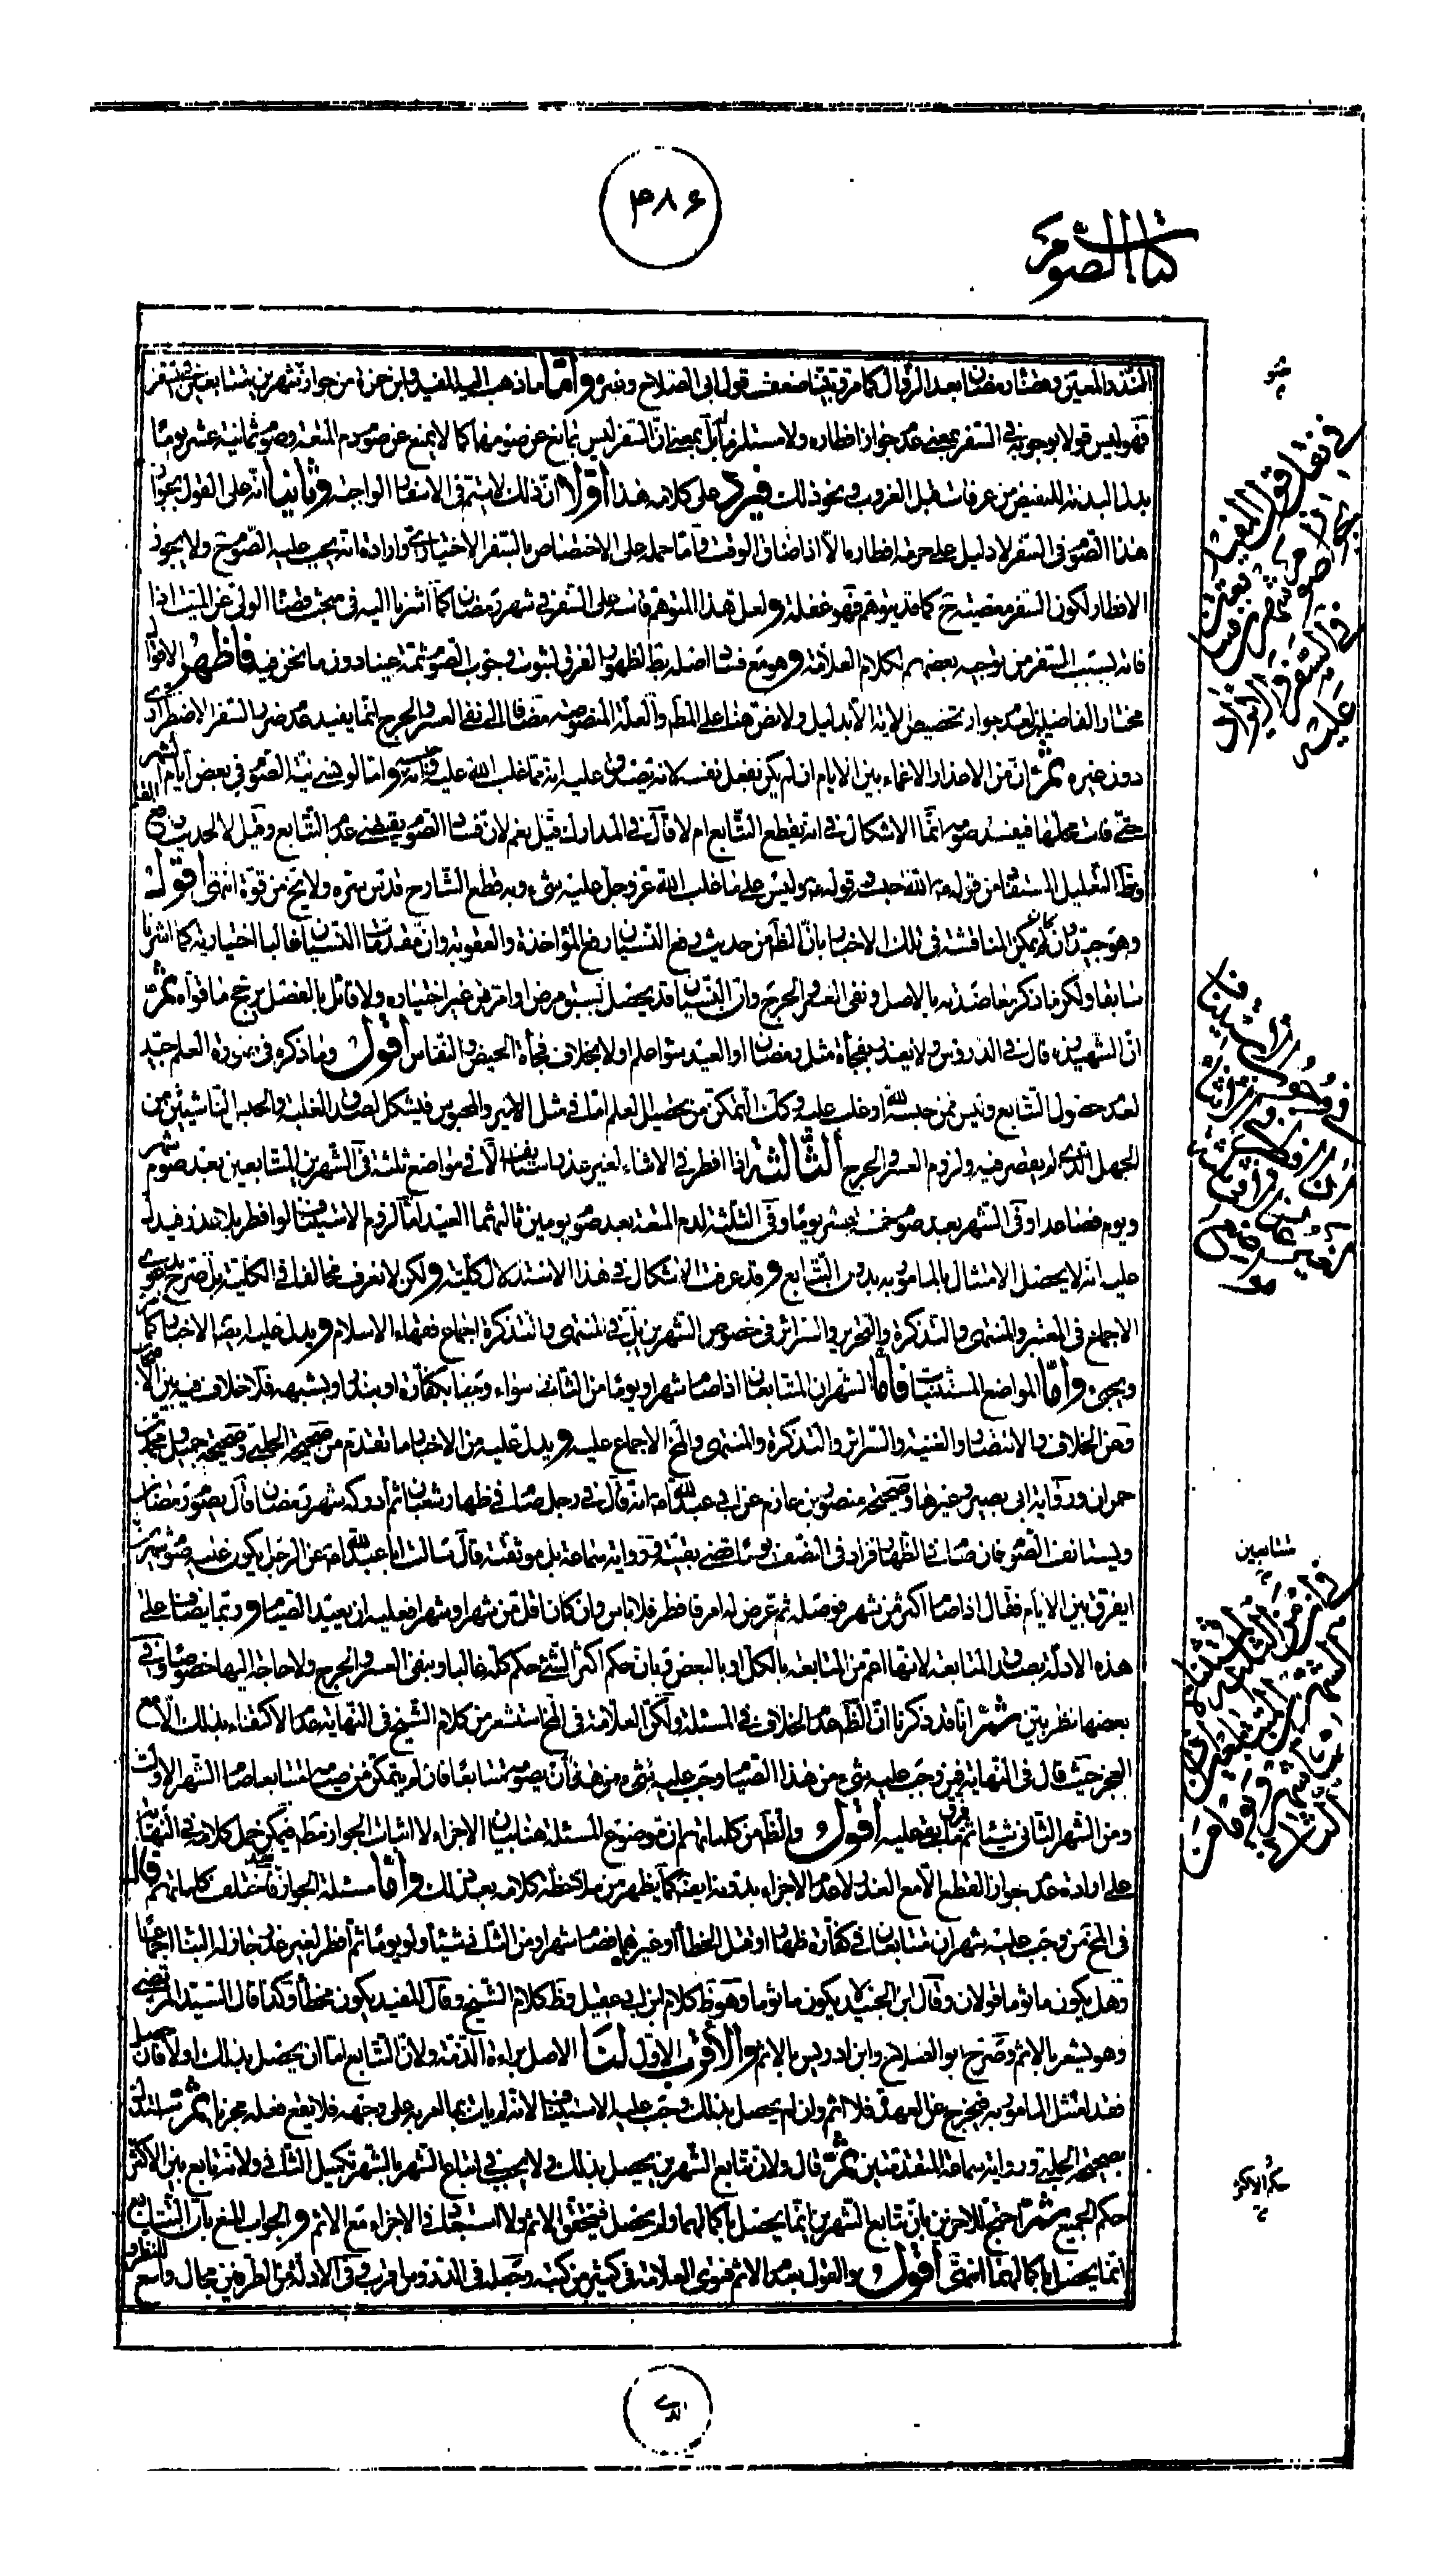 ٣٨۶
كتاب الصوم
المنذر المعين وقضاء رمضان بعد الزوال كما مر وقد بينا ضعف قول ابى الصلاح وغيره واما ما ذهب اليه المفيد وابن حمزة من جواز شهرين متتابعين فى السفر
فهو ليس قولا بوجوبه فى السفر بمعنى عدم جواز افطاره ولا مستلزما بل بمعنى ان السفر ليس بمانع عن صومهما كما لا يمنع عن صوم دم المتعة وصوم ثمانية عشر يوما
بدل البدنة للمفيض من عرفات قبل الغروب ونحو ذلك فيرد على كلامه هذا اولا ان ذلك لا يتم فى الاسفار الواجبة وثانيا انه على القول بجواز
هذا الصوم فى السفر لا دليل على حرمة افطاره الا اذا ضاق الوقت واما حمله على الاختصاص بالسفر الاختيارى وارادة انه يجب عليه الصوم ح ولا يجوز
الافطار لكون السفر معصية ح كما قد يتوهم فهو غفلة ولعل هذا المتوهم قاسه على السفر فى شهر رمضان كما اشرنا اليه فى مبحث قضاء الولى عن الميت اذا
فاته بسبب السفر من توجيه بعضهم لكلام العلامة وهو مع فساد اصله بط لظهور الفرق لثبوت وجوب الصوم ثمة عينا دون ما نحن فيه فاظهر الاقوال
مختار الفاضلين لعدم جواز تخصيص الاية الا بدليل ولا نص هنا على المنع والعلة المنصوصة مضافا الى نفى العسر والحرج انما يفيد عدم ضرر السفر الاضطرارى
دون غيره ثم ان من الاعذار الاغماء بين الايام ان لم يكن بفعل نفسه لانه يصدق عليه انه مما غلب الله عليه واما لو نسى نية الصوم فى بعض ايام الشهر
حتى فات محلها فيفسد صومه انما الاشكال فى انه يقطع التتابع ام لا قال فى المدارك قيل نعم لان فساد الصوم يقتضى عدم التتابع وقيل لا لحديث رفع القلم
وظ التعليل المستفاد من قوله ع الله حبسه وقوله ع وليس على ما غلب الله عز وجل عليه شىء وبه قطع الشارح قدس سره ولا يخ من قوة انتهى اقول
وهو جيد وان كان يمكن المناقشة فى تلك الاخبار بان الظ من حديث رفع النسيان رفع المؤاخذة والعقوبة وان مقدمات النسيان غالبا اختيارية كما اشرنا
سابقا ولكن ما ذكر معاضد به بالاصل ونفى العسر والحرج وان النسيان قد يحصل بسبب مرض او امر من غير اختياره ولا قائل بالفصل يرجح ما قواه ثم
ان الشهيد ره قال فى الدروس ولا يعذر بفجأة مثل رمضان او العيد سواء علم او لا بخلاف فجأة الحيض والنفاس اقول وما ذكره فى صورة العلم جيد
لعدم حصول التتابع وليس ممن حبسه الله او غلب عليه وكك التمكن من تحصيل العلم اما فى مثل الاسير والمحبوس فيشكل لصدق الغلبة والحبس الناشئين من
الجهل الذى لم يقصر فيه ولزوم العسر والحرج الثالثة اذا افطر فى الاثناء لغير عذر استانف الا فى مواضع ثلثة فى الشهرين المتتابعين بعد صوم شهر
ويوم فصاعدا وفى الشهر بعد صوم خمسة عشر يوما وفى الثلثة لدم المتعة بعد صوم يومين ثالثهما العيد اما لزوم الاستيناف لو افطر بلا عذر فيدل
عليه انه لا يحصل الامتثال بالمامور به بدون التتابع وقد عرفت الاشكال فى هذا الاستدلال كلية ولكن لا نعرف مخالفا فى الكلية بل صرح بدعوى
الاجماع فى المعتبر والمنتهى والتذكرة والتحرير والسرائر فى خصوص الشهرين بل فى المنتهى والتذكرة اجماع فقهاء الاسلام ويدل عليه بعض الاخبار كما مر
ويجىء واما المواضع المستثنيات فاما الشهران المتتابعان اذا صام شهرا ويوما من الثانى سواء وجبا بكفارة او بنذر وشبهه فلا خلاف فيه بين الاصحاب
وعن الخلاف والانتصار والغنية والسرائر والتذكرة والمنتهى والمخ الاجماع عليه ويدل عليه من الاخبار ما تقدم من صحيحة الحلبى وصحيحة جميل ومحمد بن
حمران ورواية ابى بصير وغيرها وصحيحة منصور بن حازم عن ابى عبد الله ع انه قال فى رجل صام فى ظهار شعبان ثم ادركه شهر رمضان قال يصوم رمضان
ويستانف الصوم فان صام فى الظهار فزاد فى النصف يوما قضى بقيته ورواية سماعة بل موثقته قال سالت ابا عبد الله ع عن الرجل يكون عليه صوم شهرين
ايفرق بين الايام فقال اذا صام اكثر من شهر فوصله ثم عرض له امر فافطر فلا باس وان كان اقل من شهر او شهرا فعليه ان يعيد الصيام وربما يضاف على
هذه الادلة بصدق المتابعة لانها اعم من المتابعة بالكل او بالبعض وبان حكم اكثر الشئ حكم كله غالبا وبنفى العسر والحرج ولا حاجة اليها خصوصا وفى
بعضها نظر بين ثم انا قد ذكرنا ان الظ عدم الخلاف فى المسئلة ولكن العلامة فى المخ استشعر من كلام الشيخ فى النهاية عدم الاكتفاء بذلك الا مع
العجز حيث قال فى النهاية فمن وجب عليه شىء من هذا الصيام وجب عليه شىء من هذا ان يصوم متتابعا فان لم يتمكن من صيامه متتابعا صام الشهر الاول
ومن الشهر الثانى شيئا ثم فرق ما بقى عليه اقول والظ من كلماتهم ان موضوع المسئلة هنا بيان الاجزاء لا اثبات الجواز مط فيمكن حمل كلامه فى النهاية
على ارادة عدم جواز القطع الا مع العذر لا عدم الاجزاء بدونه ايضا كما يظهر من ملاحظة كلامه بعد ذلك واما مسئلة الجواز فاختلف فيه كلماتهم قال
فى المخ من وجب عليه شهران متتابعان فى كفارة ظهار او قتل الخطأ او غيرهما فصام شهرا ومن الثانى شيئا ولو يوما ثم افطر لغير عذر جاز له البناء اجماعا
وهل يكون ماثوما قولان وقال ابن الجنيد لا يكون ماثوما وهو ظ كلام ابن ابى عقيل وظ كلام الشيخ وقال المفيد يكون مخطأ وكذا قال السيد المرتضى
وهو يشعر بالاثم وصرح ابو الصلاح وابن ادريس بالاثم والاقرب الاول لنا الاصل براءة الذمة ولان التتابع اما ان يحصل بذلك اولا فان حصل
فقد امتثل المامور به فيخرج عن العهدة فلا اثم وان لم يحصل بذلك وجب عليه الاستيناف لانه لم يات بما امر به على وجهه فلا يقع فعله مجزيا ثم استدل
بصحيحة الحلبى ورواية سماعة المتقدمتين ثم قال ولان تتابع الشهرين يحصل بذلك ولا يجب فى اتباع الشهر بالشهر تكميل الثانى ولانه تابع بين الاكثر
حكم الجميع ثم احتج للاخرين بان تتابع الشهرين انما يحصل باكمالهما ولم يحصل فيتحقق الاثم ولا استبعاد فى الاجزاء مع الاثم والجواب المنع بان التتابع
انما يحصل باكمالهما انتهى اقول والقول بعدم الاثم فتوى العلامة فى كثير من كتبه وجعله فى الدروس اقرب وفى الادلة من الطرفين مجال واسع للنظر و
صو
فى نقل قول المفيد
بجواز صوم شهرين متتابعين
فى السفر والايراد عليه
متتابعين
حكم الاكثر
الذى